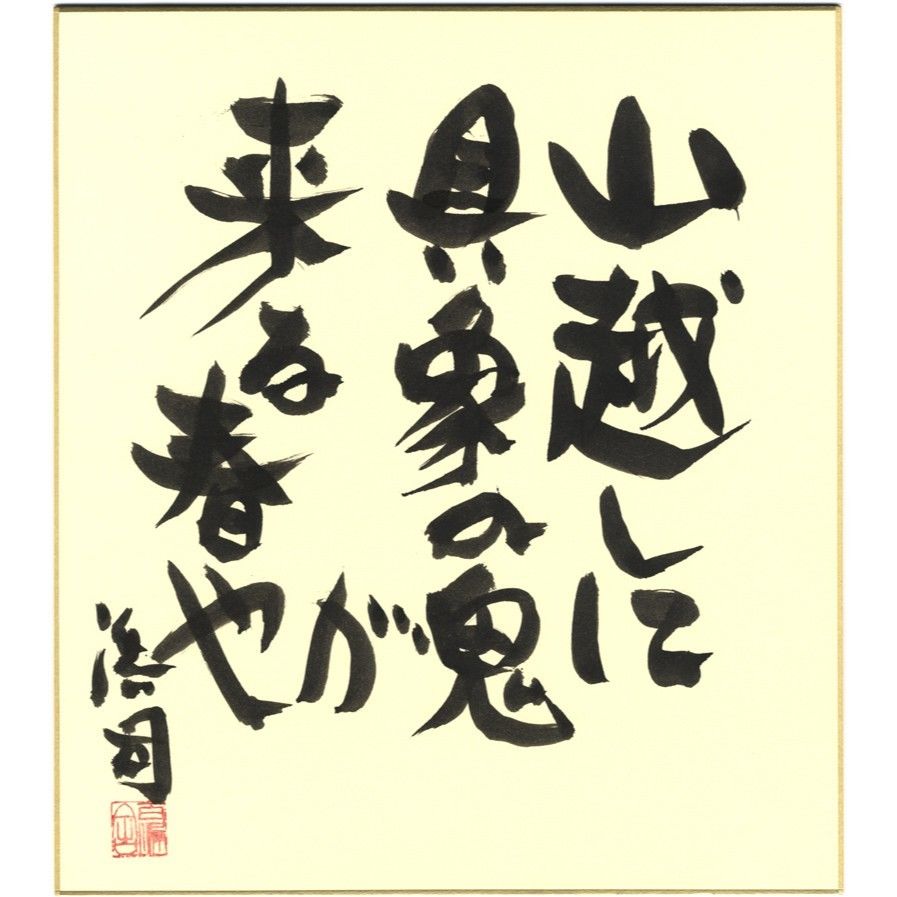 山越しに
具象の鬼
が
来る春や